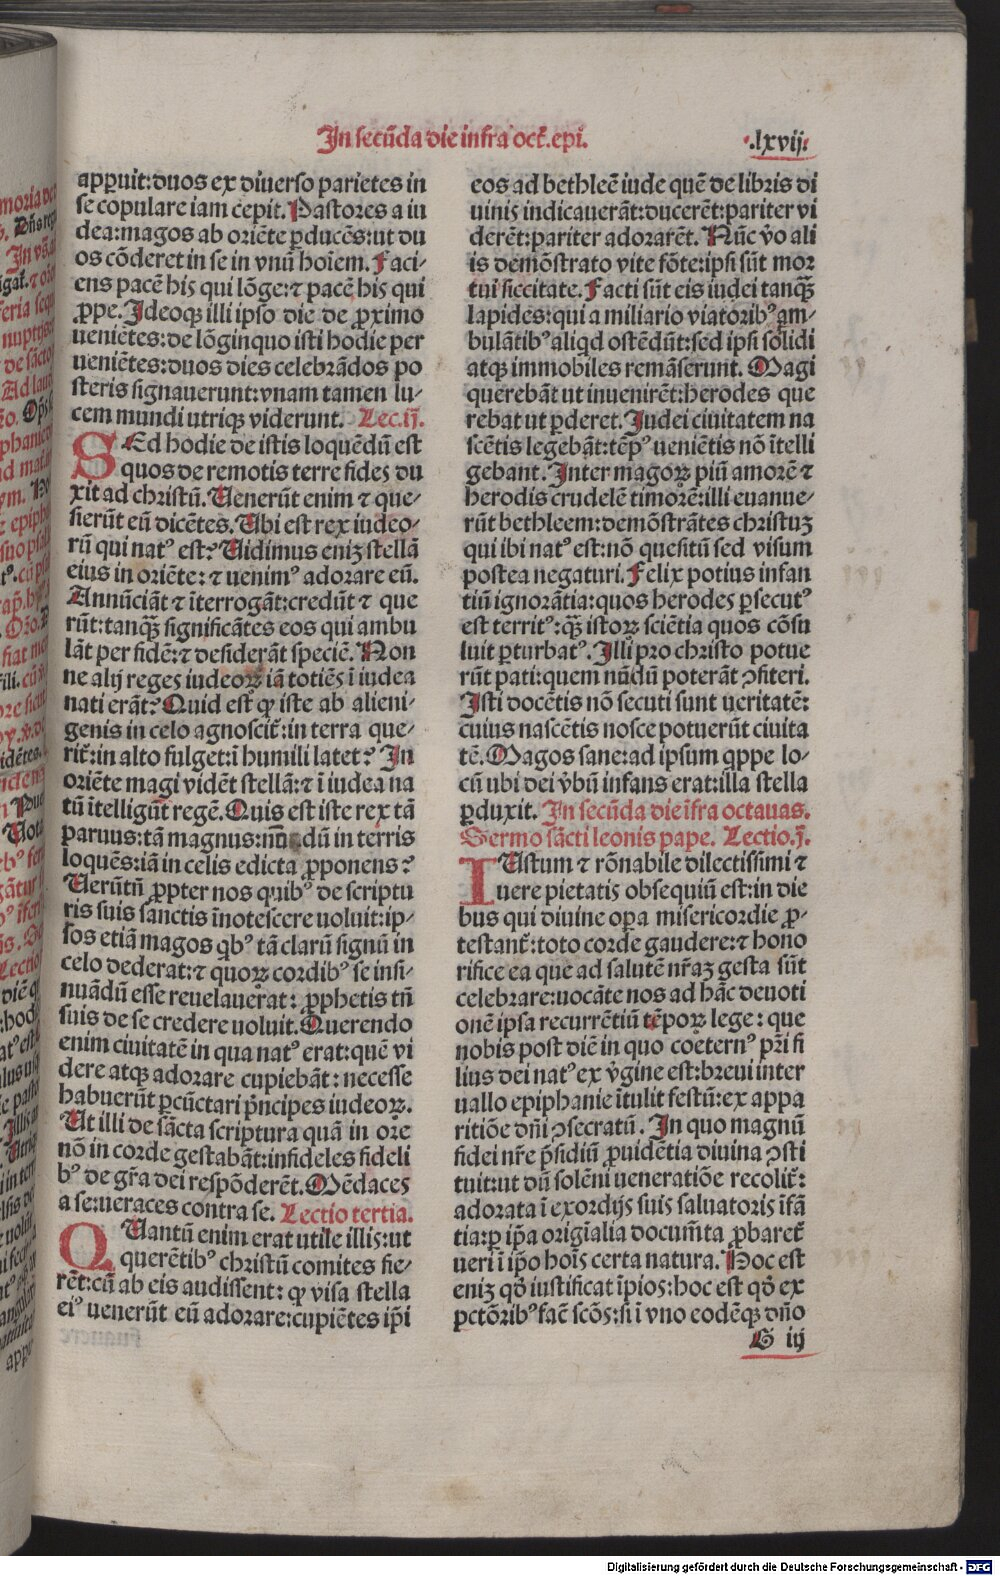 In secũda die infra oct̄. epi.
.lxvij.
appꝛuit: duos ex diuerſo parietes in
ſe copulare iam cepit. Paſtores a iu
dea: magos ab oriẽte ꝑducẽs: ut du
os cõderet in ſe in vnũ hoĩem. Faci⸗
ens pacẽ his qui lõge: ⁊ pacẽ his qui
ꝓpe. Ideoqꝫ illi ipſo die de ꝓximo
ueniẽtes: de lõginquo iſti hodie per
ueniẽtes: duos dies celebrãdos po
ſteris ſignauerunt: vnam tamen lu⸗
cem mundi utriqꝫ viderunt. Lec.ij.
SEd hodie de iſtis loquẽdũ eſt
quos de remotis terre fides du
xit ad chriſtũ. Uenerũt enim ⁊ que⸗
ſierũt eũ dicẽtes. Ubi eſt rex iudeo⸗
rũ qui natꝰ eſt? Uidimus eniꝫ ſtellã
eius in oriẽte: ⁊ uenimꝰ adorare eũ.
Annũciãt ⁊ ĩterrogãt: credũt ⁊ que
rũt: tanqꝫ̃ ſignificãtes eos qui ambu
lãt per fidẽ: ⁊ deſiderãt ſpeciẽ. Non
ne alij reges iudeoꝝ iã totiẽs ĩ iudea
nati erãt? Quid eſt ꝙ iſte ab alieni⸗
genis in celo agnoſcit̃: in terra que⸗
rit̃: in alto fulget: ĩ humili latet? In
oriẽte magi vidẽt ſtellã: ⁊ ĩ iudea na
tũ ĩtelligũt regẽ. Quis eſt iſte rex tã
paruus: tã magnus: nũdũ in terris
loquẽs: iã in celis edicta ꝓponens?
Uerũtñ ꝓpter nos quibꝰ de ſcriptu
ris ſuis ſanctis ĩnoteſcere uoluit: ip⸗
ſos etiã magos qͥbꝰ tã clarũ ſignũ in
celo dederat: ⁊ quoꝝ cordibꝰ ſe inſi⸗
nuãdũ eſſe reuelauerat: ꝓphetis tñ
ſuis de ſe credere uoluit. Querendo
enim ciuitatẽ in qua natꝰ erat: quẽ vi
dere atqꝫ adorare cupiebãt: neceſſe
habuerũt ꝑcũctari pͥncipes iudeoꝝ.
Ut illi de ſãcta ſcriptura quã in ore
nõ in corde geſtabãt: infideles fideli
bꝰ de gr̃a dei reſpõderẽt. Mẽdaces
a ſe: ueraces contra ſe. Lectio tertia.
QUantũ enim erat utile illis: ut
querẽtibꝰ chriſtũ comites fie⸗
rẽt: cũ ab eis audiſſent: ꝙ viſa ſtella
eiꝰ uenerũt eũ adorare: cupiẽtes ip̃i
eos ad bethleẽ iude quẽ de libris di
uinis indicauerãt: ducerẽt: pariter vi
derẽt: pariter adorarẽt. Nũc v̊o ali
is demõſtrato vite fõte: ipſi ſũt mor
tui ſiccitate. Facti ſũt eis iudei tanqꝫ̃
lapides: qui a miliario viatoribꝰ am⸗
bulãtibꝰ aliqͥd oſtẽdũt: ſed ipſi ſolidi
atqꝫ immobiles remãſerunt. Magi
querebãt ut inuenirẽt: herodes que
rebat ut ꝑderet. Iudei ciuitatem na
ſcẽtis legebãt: tẽpꝰ ueniẽtis nõ ĩtelli
gebant. Inter magoꝝ piũ amorẽ ⁊
herodis crudelẽ timorẽ: illi euanue⸗
rũt bethleem: demõſtrãtes chriſtuꝫ
qui ibi natꝰ eſt: nõ queſitũ ſed viſum
poſtea negaturi. Felix potius infan
tiũ ignorãtia: quos herodes ꝑſecutꝰ
eſt territꝰ: qꝫ̃ iſtoꝝ ſciẽtia quos cõſu
luit ꝑturbatꝰ. Illi pro chriſto potue
rũt pati: quem nũdũ poterãt ꝯfiteri.
Iſti docẽtis nõ ſecuti ſunt ueritatẽ:
cuius naſcẽtis noſce potuerũt ciuita
tẽ. Magos ſane: ad ipſum qͥppe lo⸗
cũ ubi dei v̊bũ infans erat: illa ſtella
ꝑduxit. In ſecũda die ĩfra octauas.
Sermo ſãcti leonis pape. Lectio.j.
IUſtum ⁊ rõnabile dilectiſſimi ⁊
uere pietatis obſequiũ eſt: in die
bus qui diuine oꝑa miſericordie ꝓ⸗
teſtant̃: toto corde gaudere: ⁊ hono
rifice ea que ad ſalutẽ nr̃aꝫ geſta ſũt
celebrare: uocãte nos ad hãc deuoti
onẽ ipſa recurrẽtiũ tẽpoꝝ lege: que
nobis poſt diẽ in quo coeternꝰ pr̃i fi
lius dei natꝰ ex v̊gine eſt: breui inter
uallo epiphanie ĩtulit feſtũ: ex appa
ritiõe dñi ꝯſecratũ. In quo magnũ
fidei nr̃e pͥſidiũ ꝓuidẽtia diuina ꝯſti
tuit: ut dũ ſolẽni ueneratiõe recolit̃:
adorata ĩ exordijs ſuis ſaluatoris ĩfã
tia: ꝑ ip̃a origĩalia docum̃ta ꝓbaret̃
ueri ĩ ip̃o hoĩs certa natura. Hoc eſt
eniꝫ qð iuſtificat ĩpios: hoc eſt qð ex
pctõribꝰ facͥ ſcõs: ſi ĩ vno eodẽqꝫ dño
G iij
Digitalisierung gefördert durch die Deutsche Forschungsgemeinschaft - DFG